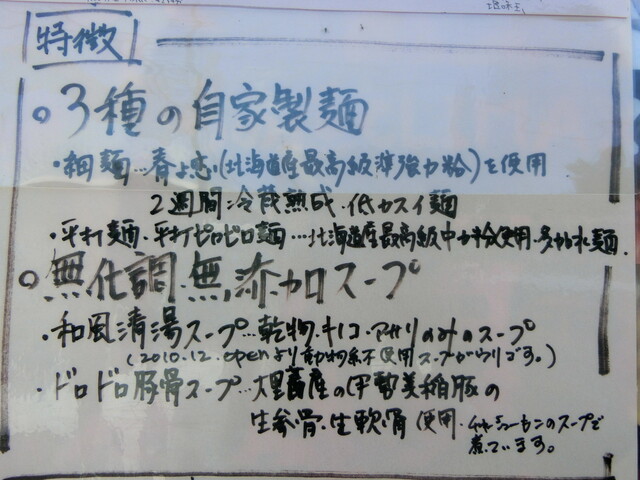 特徴
・3種の自家製麺
・細麺…春よ恋(北海道産最高級準強力粉)を使用
2週間冷蔵熟成・低カスイ麺
・平打麺・平打ピロピロ麺…北海道産最高級中力粉使用・多加水麺
・無化調・無添加スープ
・和風清湯スープ…乾物・キノコ・アサリのみのスープ
(2010.12.openより動物系不使用スープがウリです。)
・ドロドロ豚骨スープ…大里畜産の伊勢美稲豚の
生参骨・生軟骨使用・チャーシューもこのスープで
煮ています。